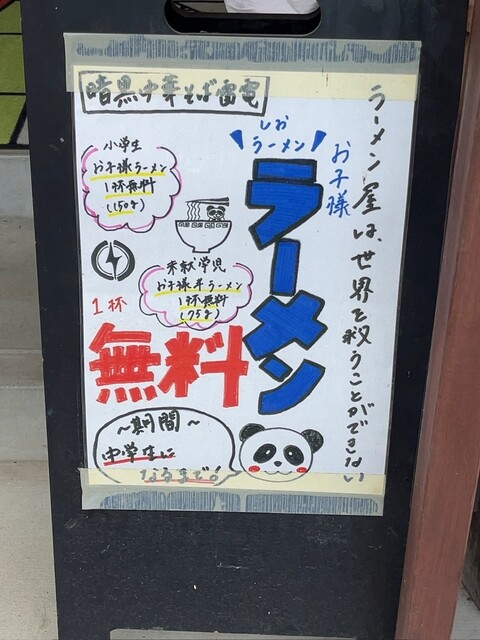 暗黒中華そば雷電
ラーメン屋は、世界を救うことができない
お子様
しお
ラーメン
ラーメン
小学生
お子様ラーメン
1杯無料
(150g)
未就学児
お子様半ラーメン
1杯無料
(75g)
1杯
無料
～期間～
中学生に
なるまで!